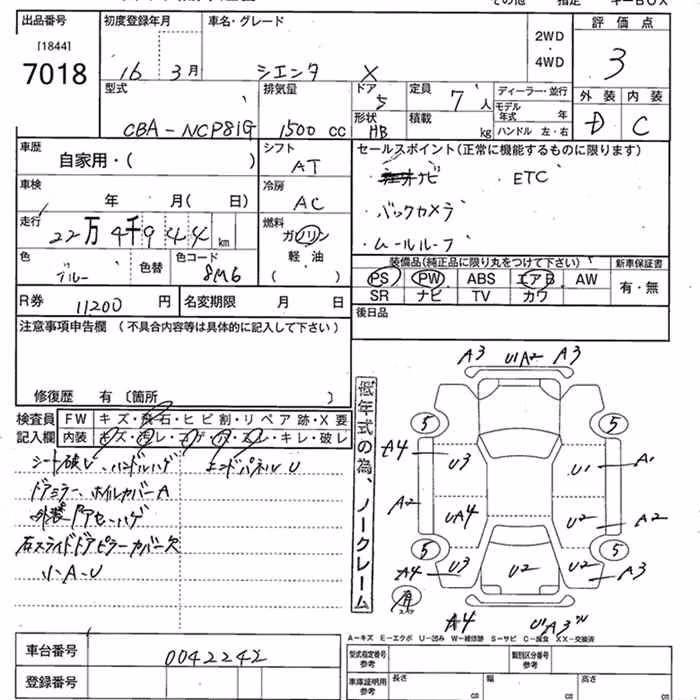 その他 指定 キーBOX
出品番号 初度登録年月 車名・グレード 評価点
[1844] 2WD
7018 16 3月 シエンタ X ・ 4WD 3
型式 排気量 ドア 定員 ディーラー・並行 外装 内装
5 7人 モデル年式 年
CBA-NCP81G 1500 CC 形状 積載 D C
HB kg ハンドル 左・右
車歴 シフト セールスポイント(正常に機能するものに限ります)
自家用・( ) AT ナビ ETC
車検 冷房
年 月( 日) AC バックカメラ
走行 燃料
22万4千944km ガソリン ムールルーフ
色 色替 色コード 軽・油 装備品(純正品に限り丸をつけて下さい) 新車保証書
ブルー 8M6 ( ) PS PW ABS エアB AW 有・無
R券 11200円 名変期限 月 日 SR ナビ TV カワ
後日品
注意事項申告欄 (不具合内容等は具体的に記入して下さい)
修復歴 有 〔箇所 〕
検査員 FW キズ・飛石・ヒビ割・リペア跡・X要
記入欄 内装 キズ・汚レ・コゲ・穴・スレ・キレ・破レ
シート破レ、ハンドルハゲ エンドパネルU
ドアミラー、ホイルカバーA
外装ドアモールハゲ
右スライドドアピラーカバー欠
小A-U
低年式の為、ノークレーム
A3 U1A2 A3
5 5
A4 U3 U1 A1
A2 UA4 U2 A2
5 5
A4 U3 U2 U2 A3
有
スペア
A4 U1A3
A-キズ E-エクボ U-凹み W-補修跡 S-サビ C-腐食 XX-交換済
車台番号 0042242
登録番号
型式指定番号 類別区分番号
参考 参考
車庫証明用 長さ 幅 高さ
参考 cm cm cm